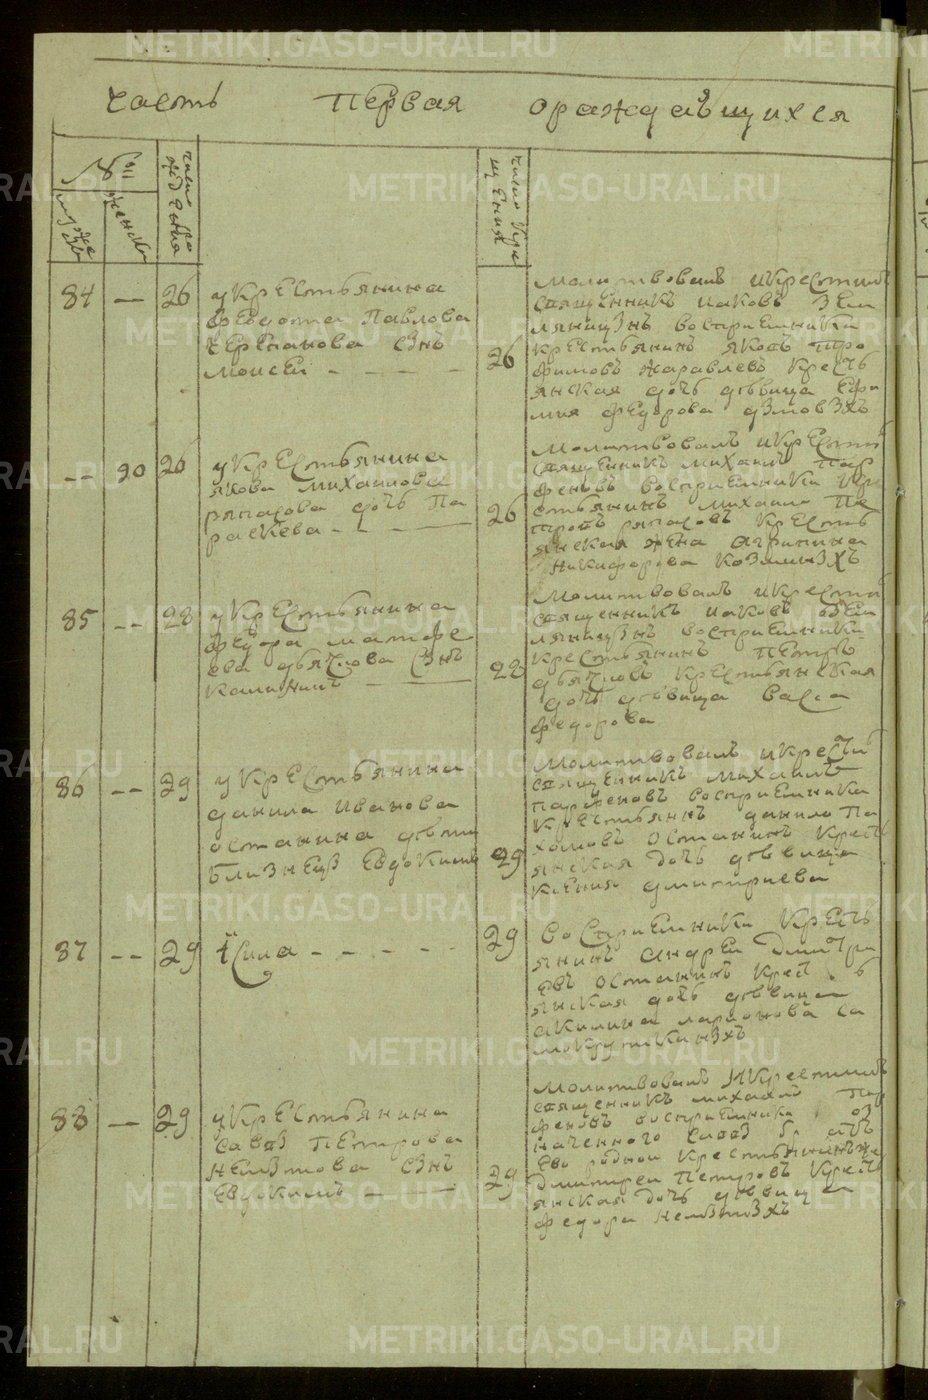 METRIKI.GASO-URAL.RU
часть первая ораждаѣщихся
число рождения
число крещения
мужеска
женска
84 — 26 у крестьянина
федота Павлова
черепанова снъ
моисеи
26 молитвовалъ и крестилъ
священникъ иаковъ зем
ляницынъ восприемники
крестьянинъ яковъ тро
фимовъ жаравлевъ кресть
янская дочь дѣвица ефи
мия федорова
— 90 26 у крестьянина
якова михаилова
дочь Па
раскева
26 молитвовалъ и крестилъ
священникъ михаилъ пар
феновъ восприемники кре
стьянинъ михаило Пе
тровъ кресть
янская жена агрипина
никифорова козминыхъ
85 — 28 у крестьянина
федора матфе
ева дьячкова снъ
калинникъ
28 молитвовалъ и крестилъ
священникъ иаковъ зем
ляницынъ восприемники
крестьянинъ петръ
дьячковъ крестьянская
дочь дѣвица васса
федорова
86 — 29 у крестьянина
данила Иванова
останина дѣти
близнецы Евдокимъ
29 молитвовалъ и крестилъ
священникъ михаилъ
парфеновъ восприемники
крестьянинъ данило Па
хомовъ останинъ крест
янская дочь дѣвица
ксения дмитриева
87 — 29 и сила
29 восприемники кресть
янинъ андреи Дмитри
евъ останинъ крест
янская дочь дѣвица
акилина ларионова са
мокруткиныхъ
88 — 29 у крестьянина
савы петрова
немытова снъ
Евдокимъ
29 молитвовалъ и крестилъ
священникъ михаилъ пар
феновъ восприемники оз
наченного савы братъ
Ево родной крестьянинъ же
дмитреи петровъ крест
янская дочь дѣвица
федора немытыхъ